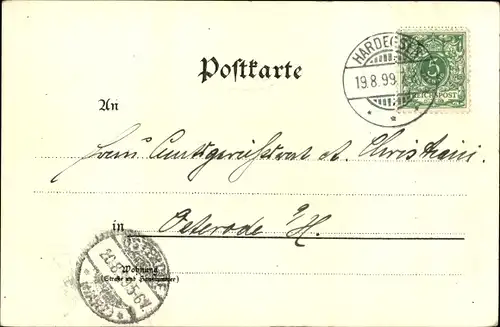 Postkarte
HARDEGSEN
19.8.99
5
REICHSPOST
An
Herrn Amtsgerichtsrat A. Christiani.
in Osterode a/H.
Wohnung
(Straße und Hausnummer)